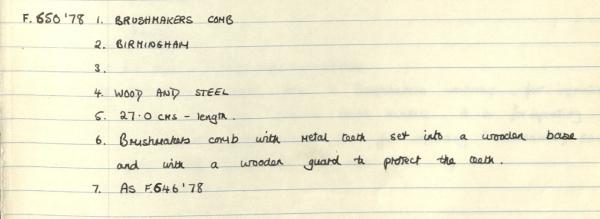 F.650'78 1. BRUSHMAKERS COMB
2. BIRMINGHAM
3.
4. WOOD AND STEEL
5. 27.0 CMS - length.
6. Brushmakers comb with metal teeth set into a wooden base
and with a wooden guard to protect the teeth.
7. AS F.646'78